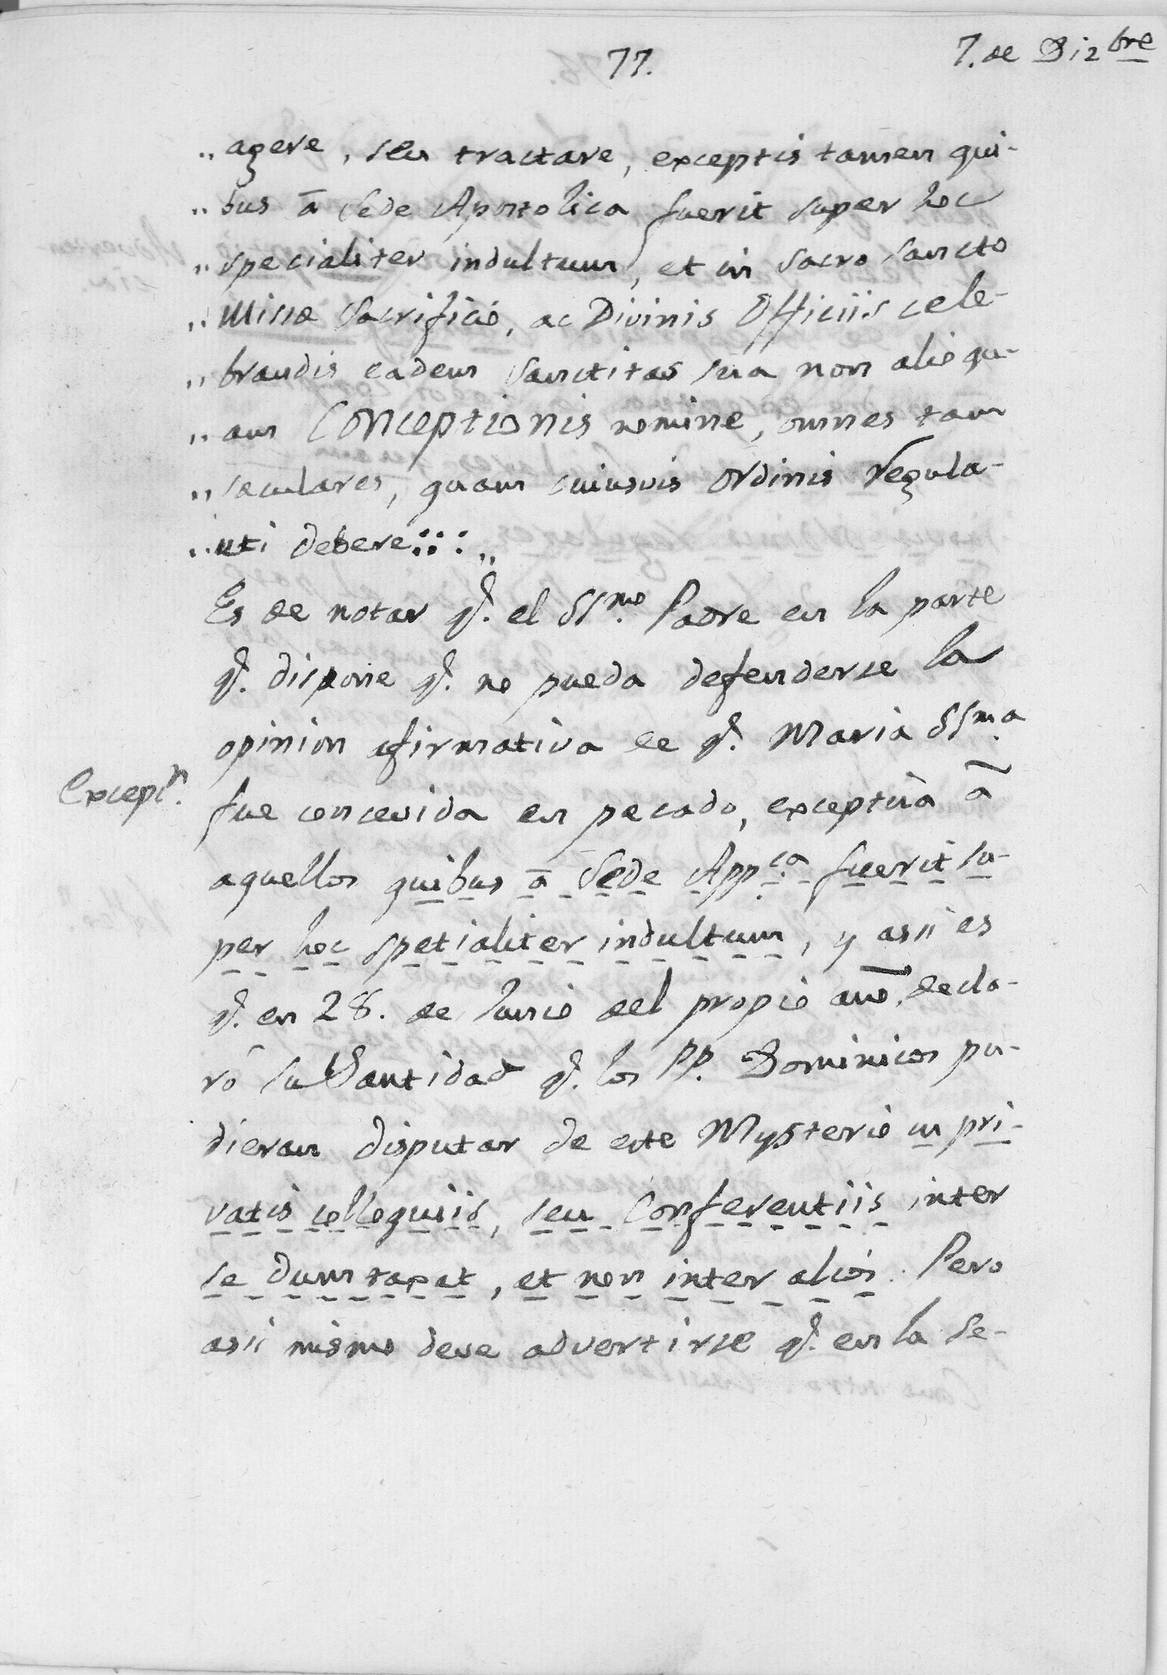 77.
7. de Dizbre
,, agere, seu tractare, exceptis tamen qui-
,, bus â Sede Apostolica fuerit super hoc
,, specialiter indultum, et in sacro sancto
,, Missæ Sacrificio, ac Divinis Officiis cele-
,, brandis eadem Sanctitas sua non alio qu-
,, am Conceptionis nomine, omnes tam
,, sæculares, quam cuiusvis ordinis regula-
,, uti debere::: ,,
Es de notar q.e el SSmo. Padre en la parte
q.e dispone q.e no pueda defenderse la
opinion afirmativa de q.e Maria SSma.
Excepn.
fue concevida en pecado, exceptùa â
aquellos quibus â Sede Appca. fuerit su-
per hoc spetialiter indultum, y asii es
q.e en 28. de Junio del propio año, decla-
rô su Santidad q.e los PP. Dominicos pu-
dieran disputar de este Mysterio in pri-
vatis colloquiis, seu Conferentiis inter
se dumtaxat, et non inter alios. Pero
asii mismo deve advertirse q.e en la Se-